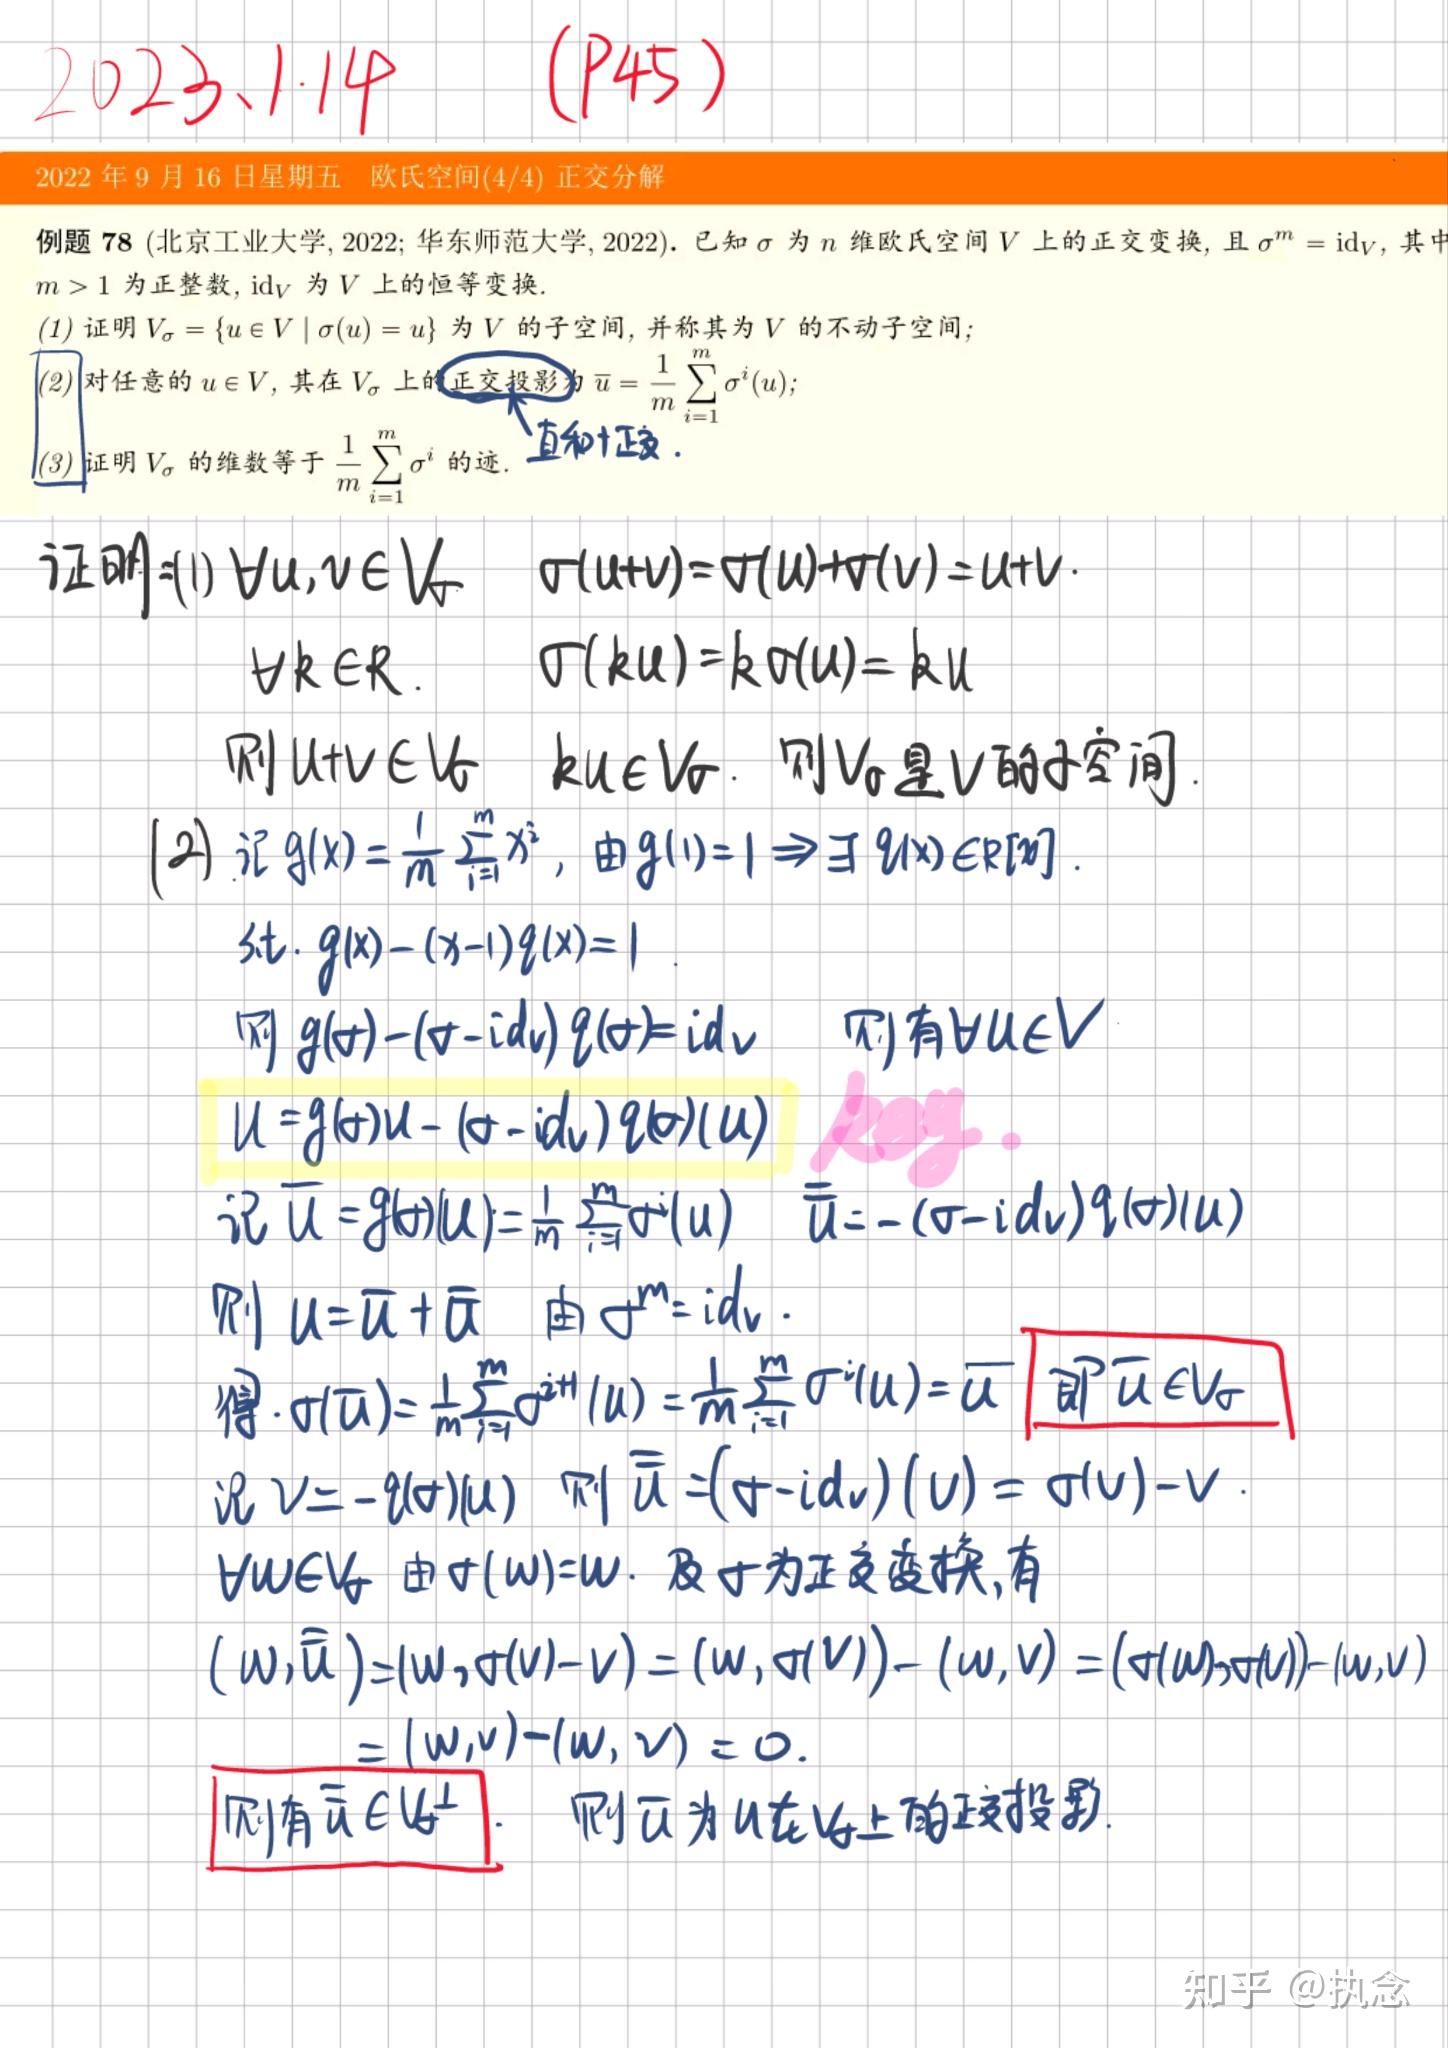 2023、1.14 (P45)
2022 年 9 月 16 日星期五 欧氏空间(4/4) 正交分解
例题 78 (北京工业大学, 2022; 华东师范大学, 2022). 已知 σ 为 n 维欧氏空间 V 上的正交变换, 且 σ^m = id_V, 其中
m > 1 为正整数, id_V 为 V 上的恒等变换.
(1) 证明 V_σ = {u ∈ V | σ(u) = u} 为 V 的子空间, 并称其为 V 的不动子空间;
(2) 对任意的 u ∈ V, 其在 V_σ 上的正交投影为 ū = 1/m ∑_{i=1}^{m} σ^i(u);
直和+正交.
(3) 证明 V_σ 的维数等于 1/m ∑_{i=1}^{m} σ^i 的迹.
证明:(1) ∀u,v∈V_σ σ(u+v)=σ(u)+σ(v)=u+v.
∀k∈R. σ(ku)=kσ(u)=ku
则u+v∈V_σ ku∈V_σ. 则V_σ是V的子空间.
(2) 记g(x)=1/m ∑_{i=1}^{m} x^i, 由g(1)=1⇒∃ q(x)∈R[x].
s.t. g(x)-(x-1)q(x)=1.
则 g(σ)-(σ-id_V)q(σ)=id_V 则有∀u∈V
u=g(σ)u-(σ-id_V)q(σ)(u) key.
记 ū=g(σ)(u)=1/m ∑_{i=1}^{m} σ^i(u) u̿=-(σ-id_V)q(σ)(u)
则 u=ū+u̿ 由σ^m=id_V.
得.σ(ū)=1/m ∑_{i=1}^{m} σ^{i+1}(u)=1/m ∑_{i=1}^{m} σ^i(u)=ū 即ū∈V_σ
记 v=-q(σ)(u) 则 u̿=(σ-id_V)(v)=σ(v)-v.
∀w∈V_σ 由σ(w)=w. 及σ为正交变换,有
(w,u̿)=(w,σ(v)-v)=(w,σ(v))-(w,v)=(σ(w),σ(v))-(w,v)
=(w,v)-(w,v)=0.
则有u̿∈V_σ^⊥. 则ū为u在V_σ上的正交投影.
知乎 @执念